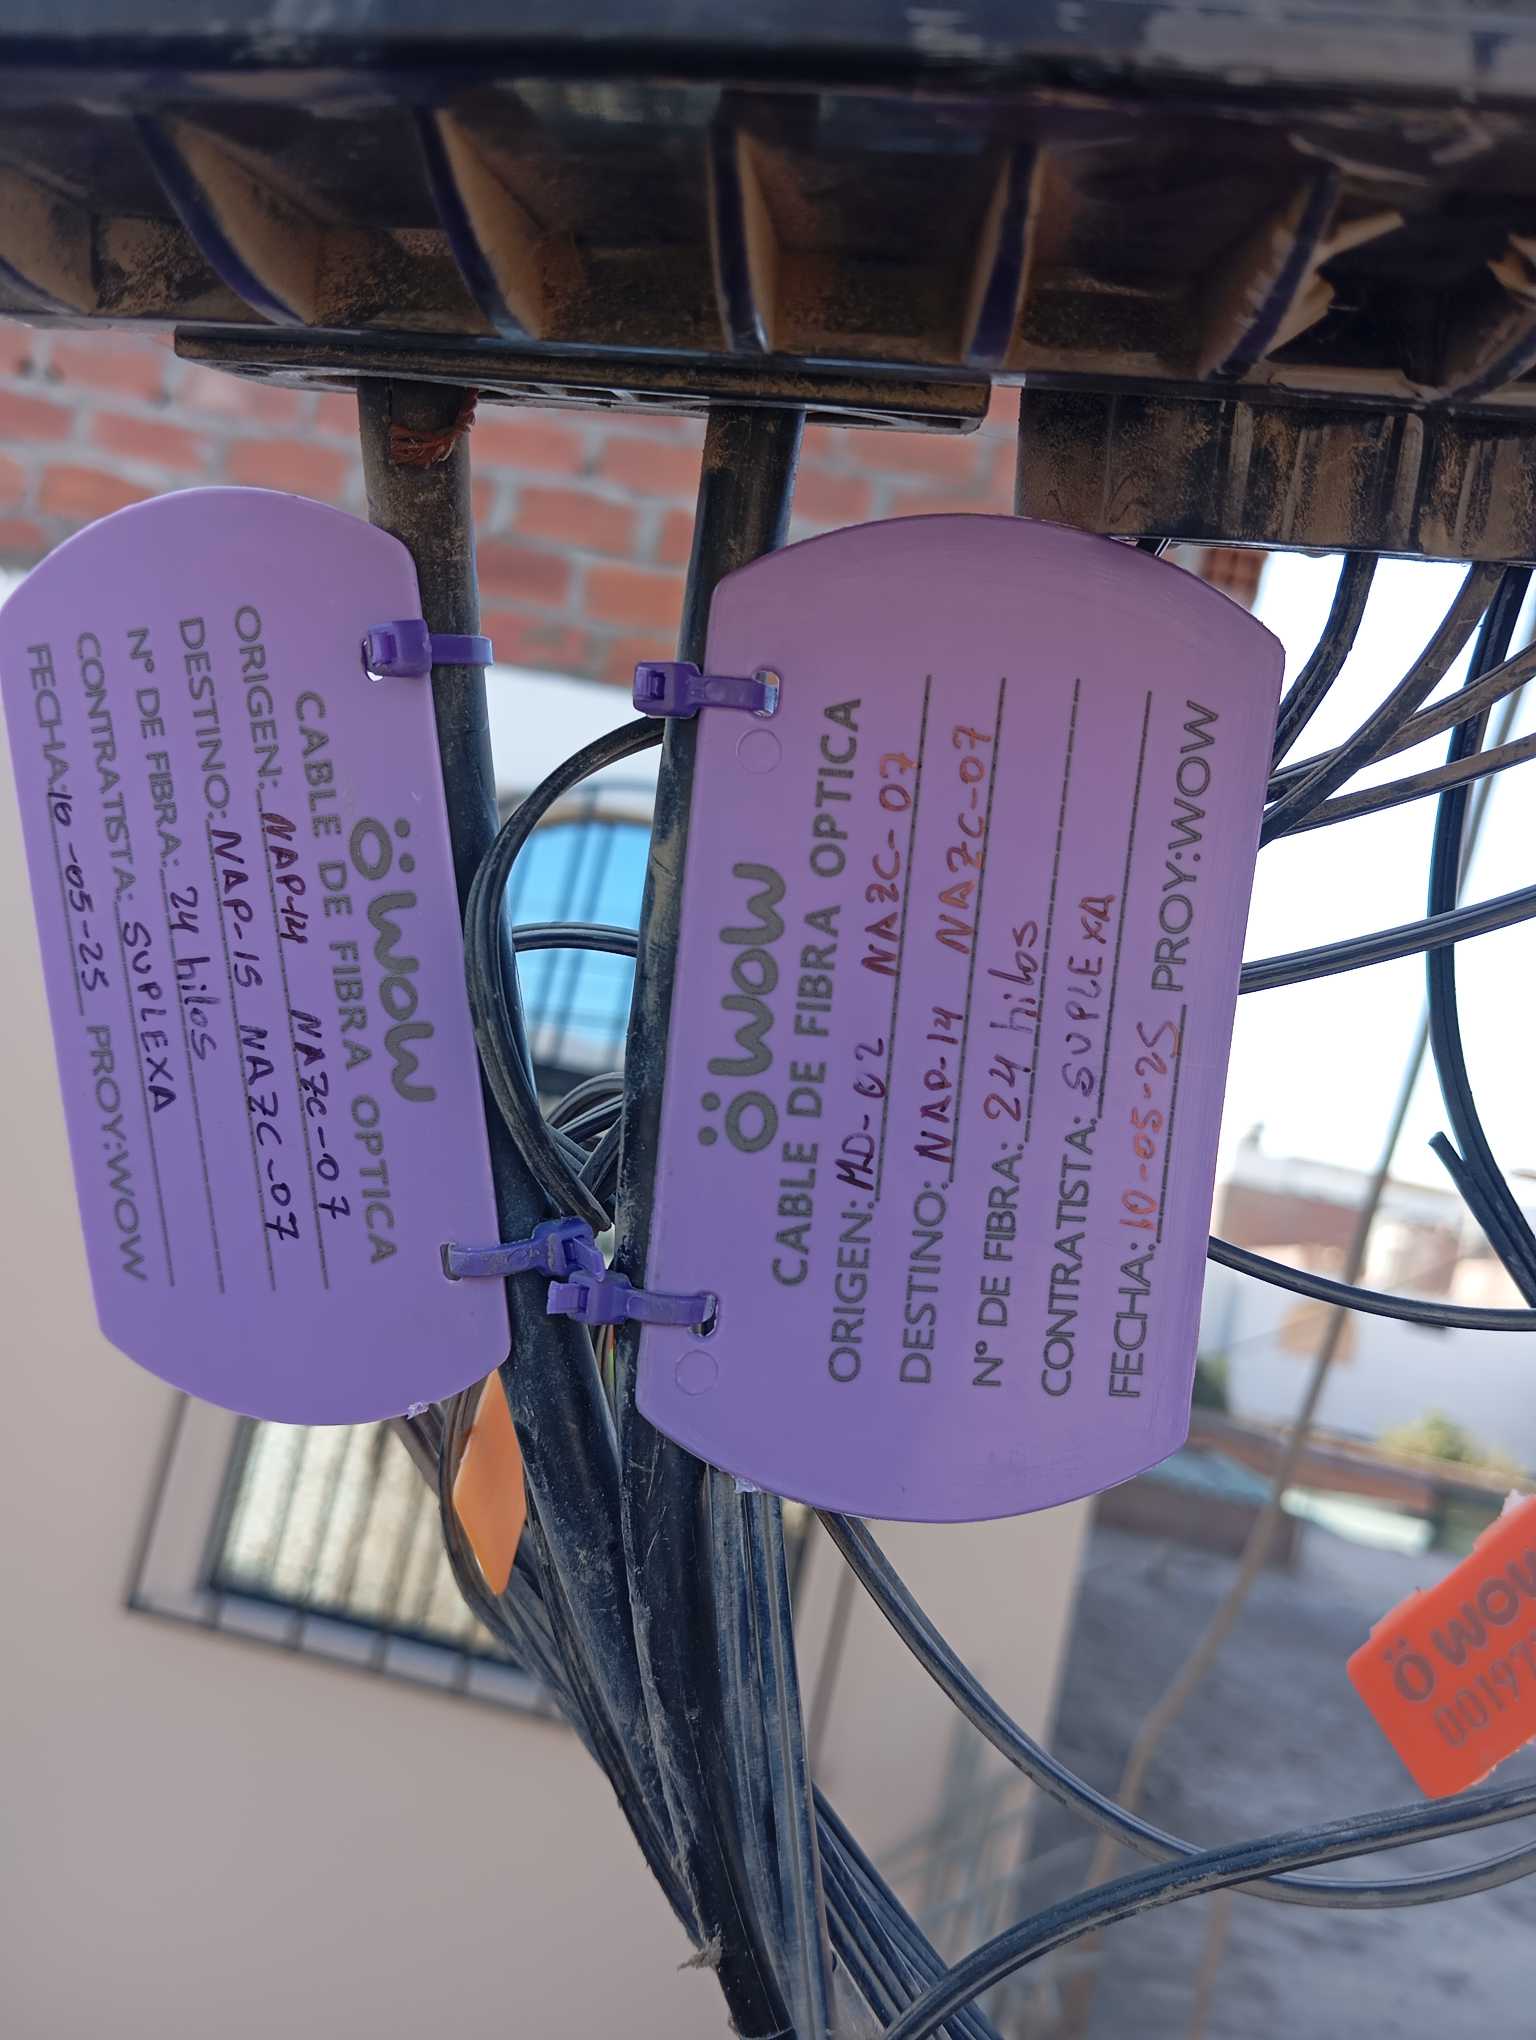 ÖWOW
CABLE DE FIBRA OPTICA
ORIGEN: NAP-14 NAZC-07
DESTINO: NAP-15 NAZC-07
N° DE FIBRA: 24 hilos
CONTRATISTA: SUPLEXA
FECHA: 10-05-25 PROY:WOW
ÖWOW
CABLE DE FIBRA OPTICA
ORIGEN: MD-02 NAZC-07
DESTINO: NAP-14 NAZC-07
N° DE FIBRA: 24 hilos
CONTRATISTA: SUPLEXA
FECHA: 10-05-25 PROY:WOW
ÖWOW